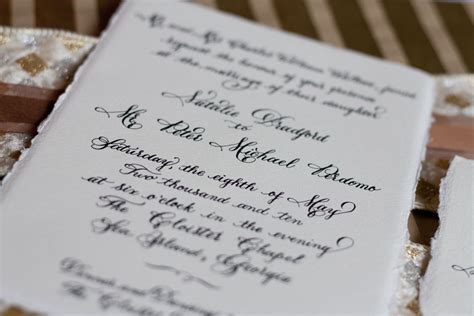 and Mrs. Charles William
request the honour of your presence
at the marriage of their daughter
Natalie Bradford
to
Mr. Peter Michael Perdomo
Saturday, the eighth of May
Two thousand and ten
at six o'clock in the evening
The Cloister Chapel
Sea Island, Georgia
Dinner and Dancing
The Cloister